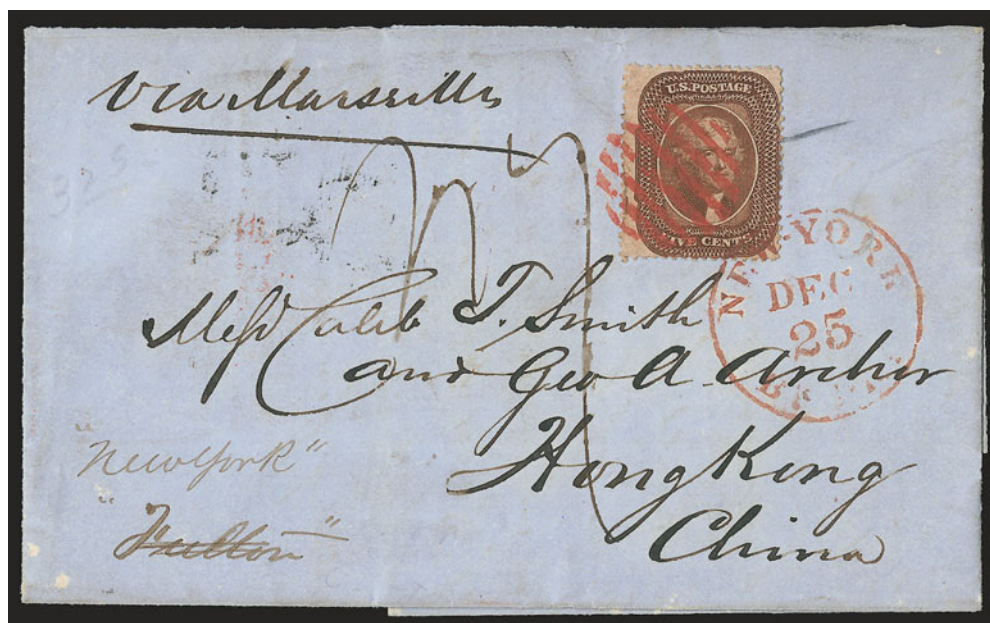 via Marseilles
U.S. POSTAGE
FIVE CENTS
NEW-YORK
DEC
25
Mess Caleb T. Smith
and Geo A. Archer
Hong Kong
China
"New York"
"Fulton"